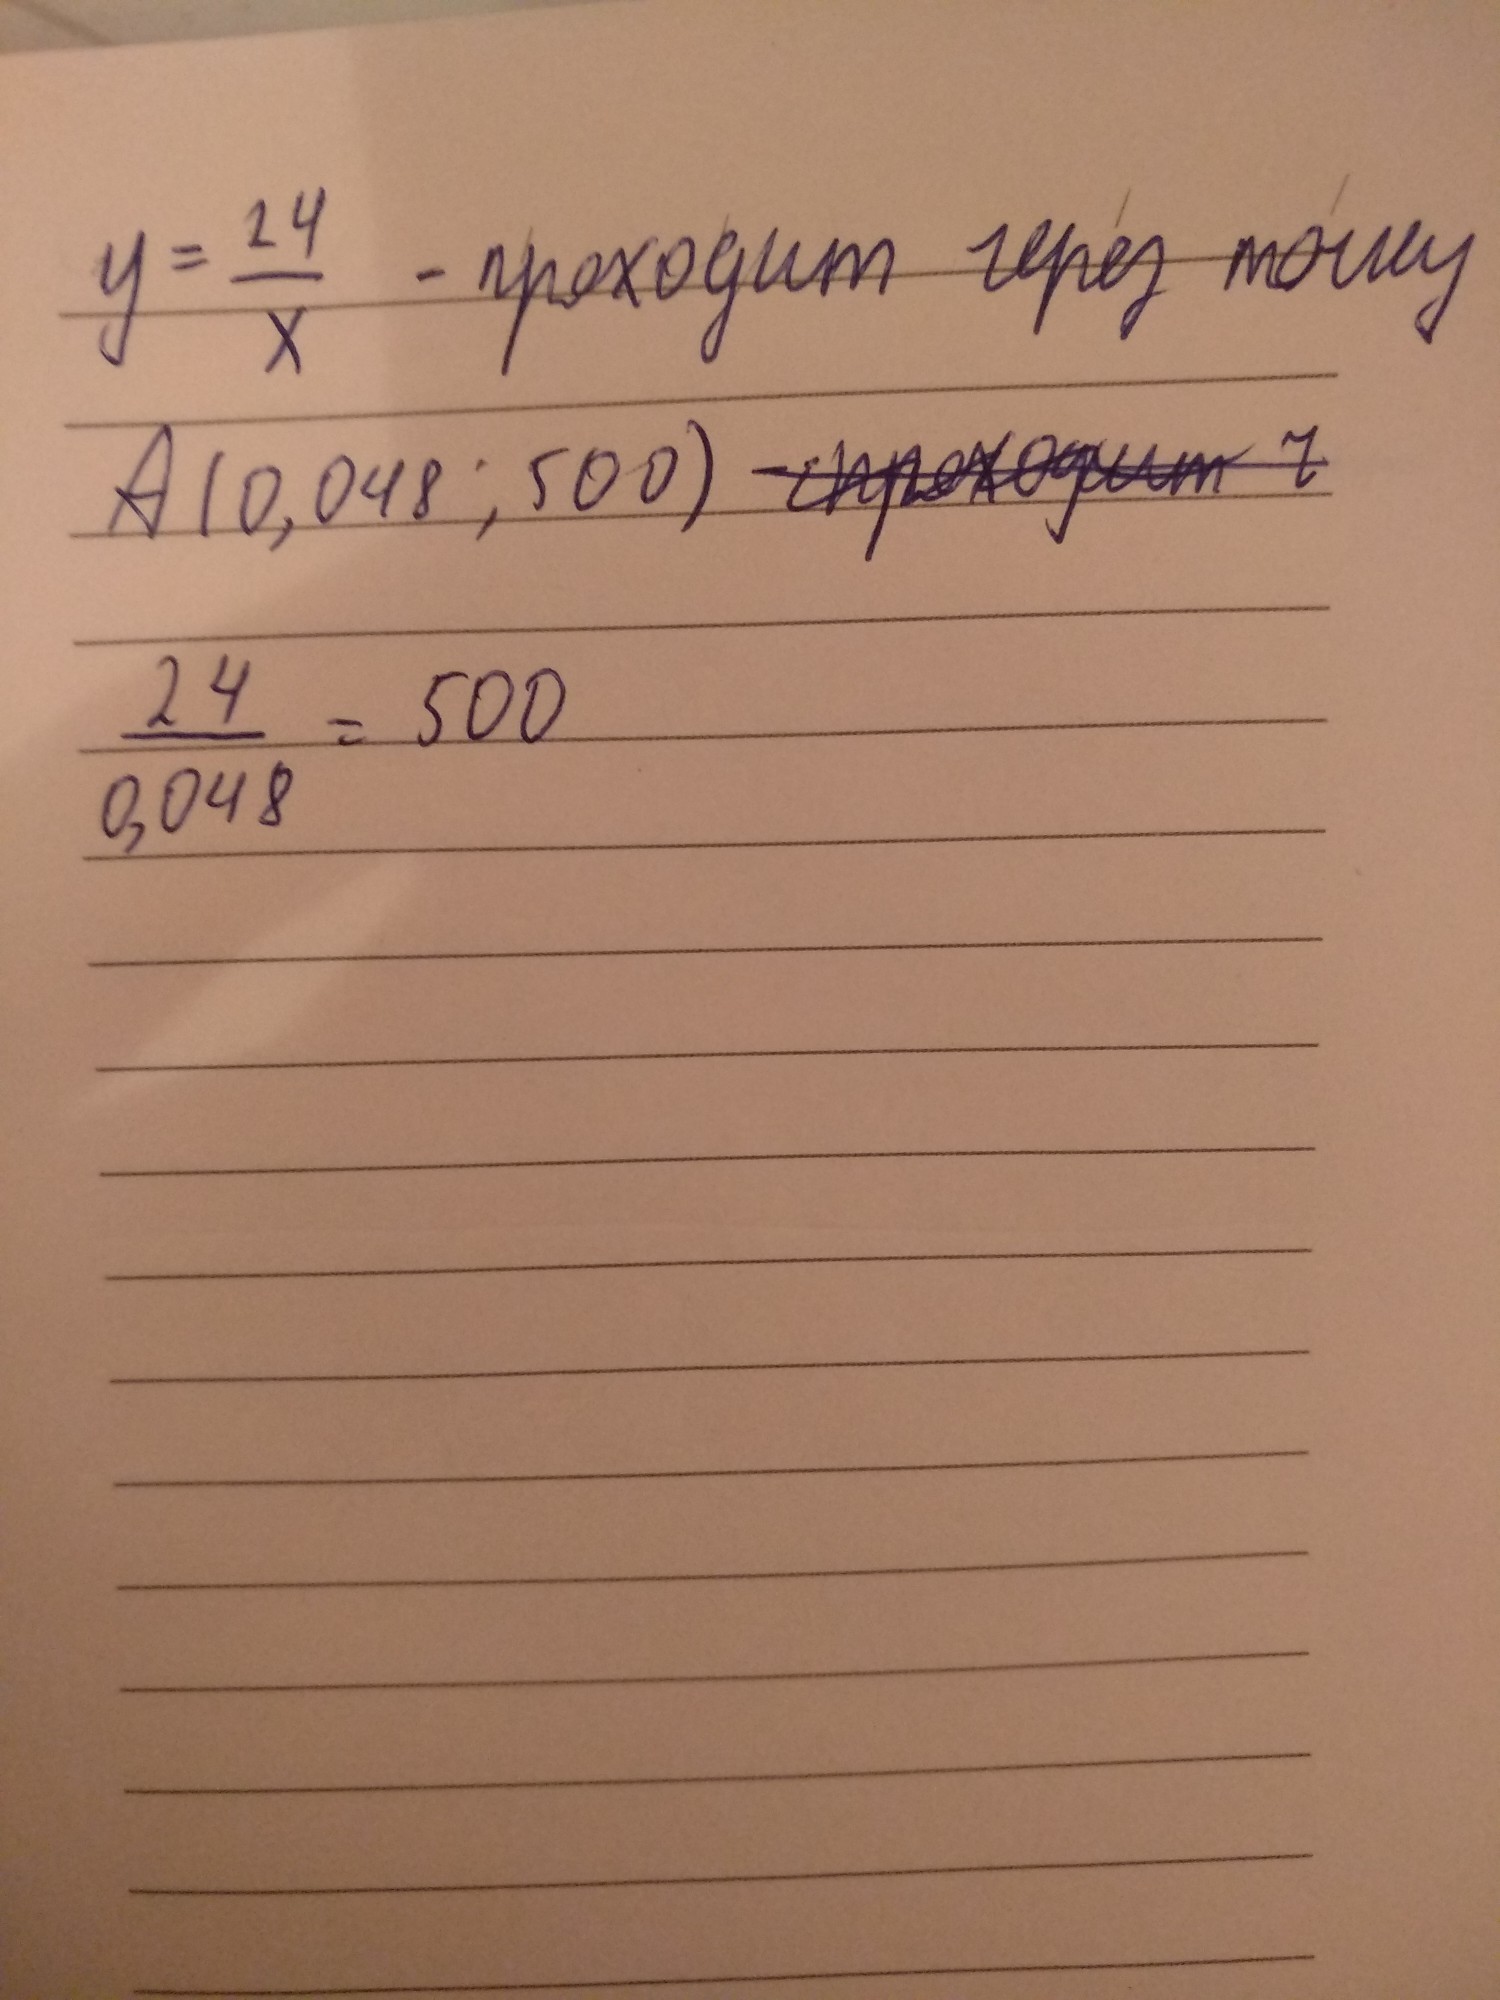 y = 24/x - проходит через точку
A(0,048; 500) - проходит ч
24/0,048 = 500